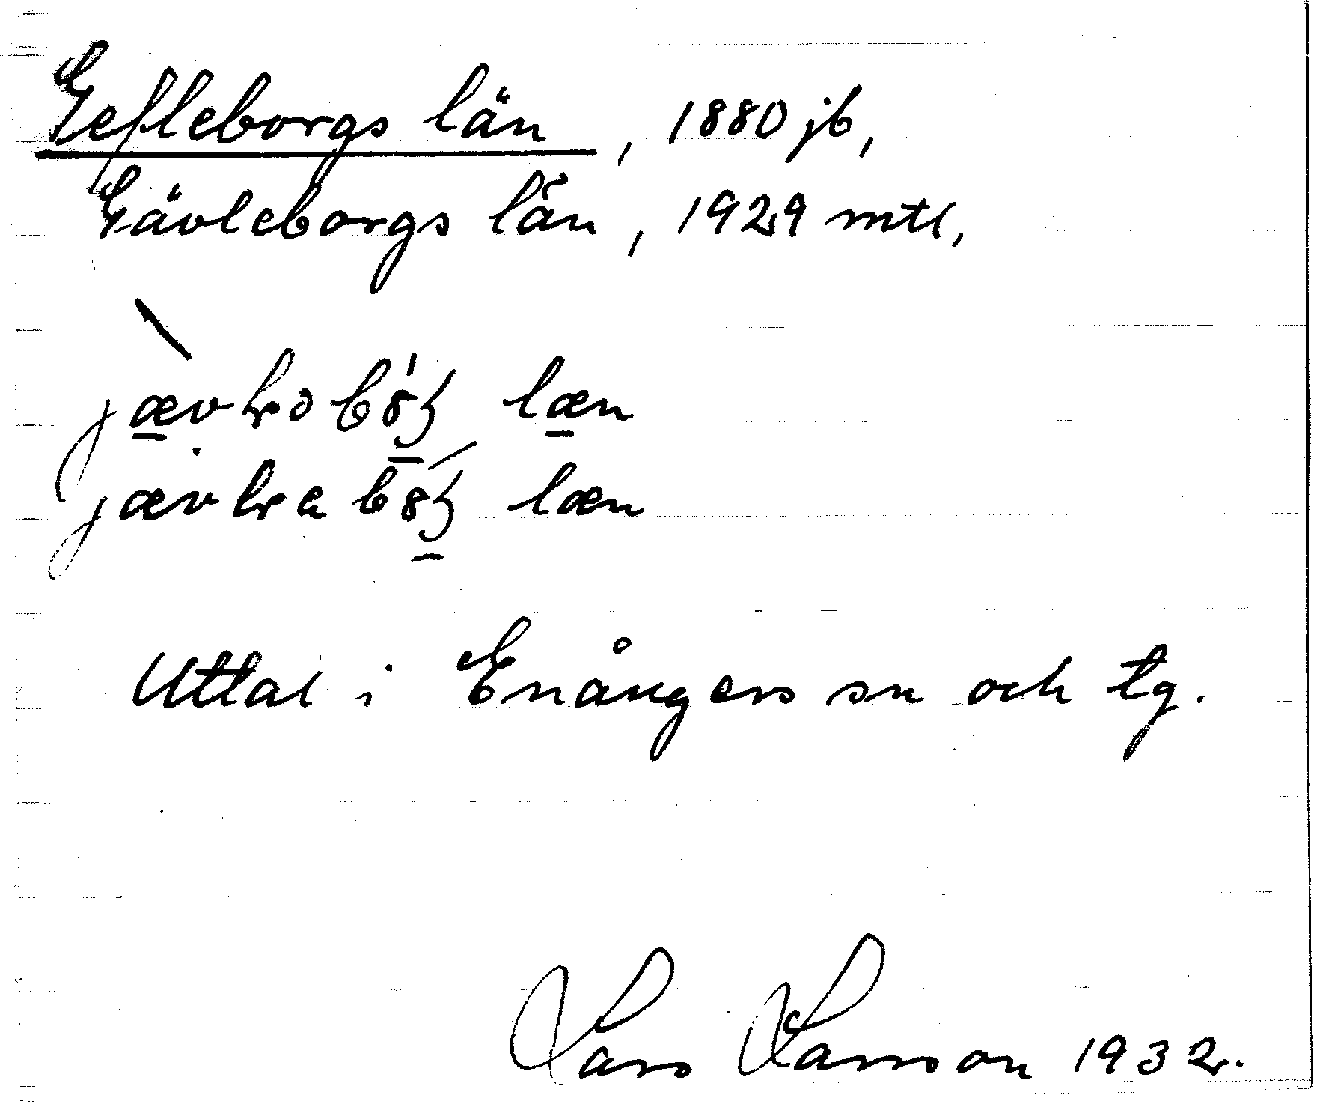 Gefleborgs län, 1880 jb,
Gävleborgs län, 1929 mtl,
læn
læn
Uttal i Enångers sn och tg.
Lars Larsson 1932.